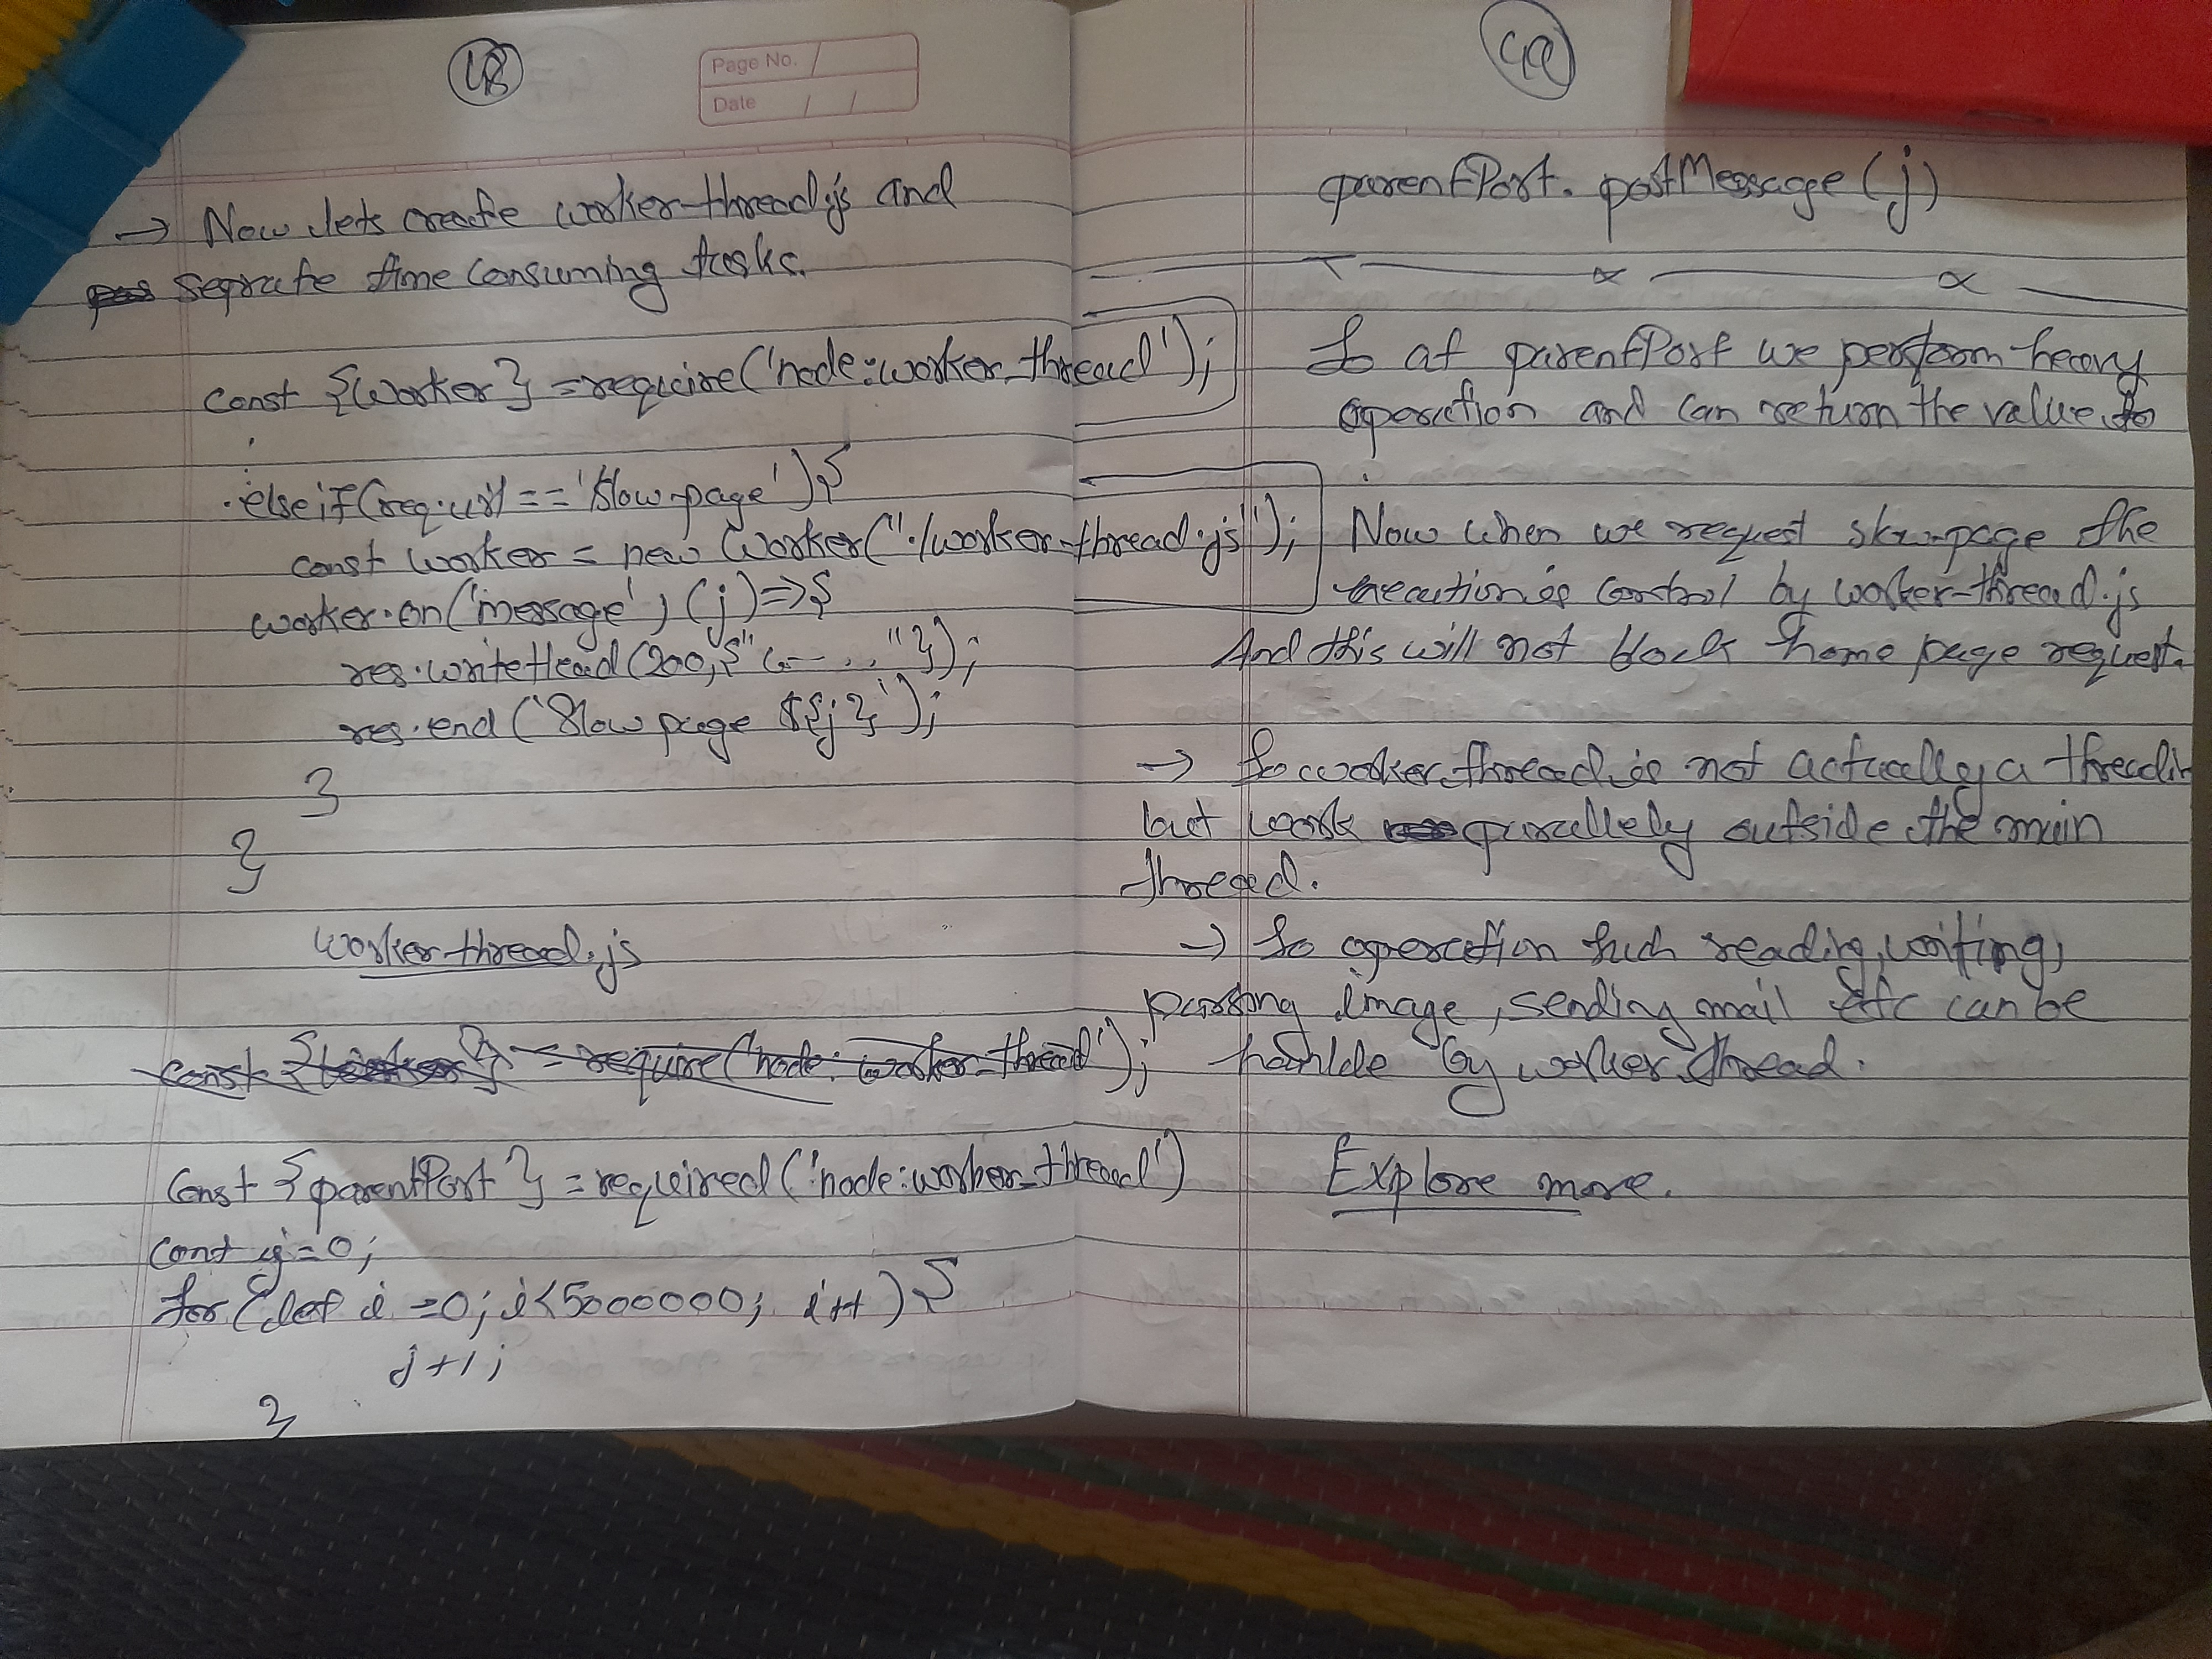 48
Page No.
Date / /
→ Now lets create worker-thread.js and
seprate time consuming tasks.
const {Worker} = require('node:worker_thread');
:
.else if(req.url == 'slow-page'){
const worker = new Worker("./worker-thread.js");
worker.on('message', (j)=>{
res.writeHead(200, {" c- - .. "});
res.end(`Slow page ${j}`);
}
}
worker-thread.js
const {} = require('node: worker_thread');
const {parentPort} = required('node:worker_thread')
const j=0;
for (let i =0; i<5000000; i++){
j+1;
}
49
parentPort. postMessage(j)
So at parentPort we perform heavy
operation and can return the value to
:
Now when we request slow-page the
execution is control by worker-thread.js
And this will not block home page request.
→ So worker thread is not actually a
but work parallely outside the main
thread.
→ So operation such reading, writing,
parsing image, sending mail etc can be
hanlde by worker thread.
Explore more.